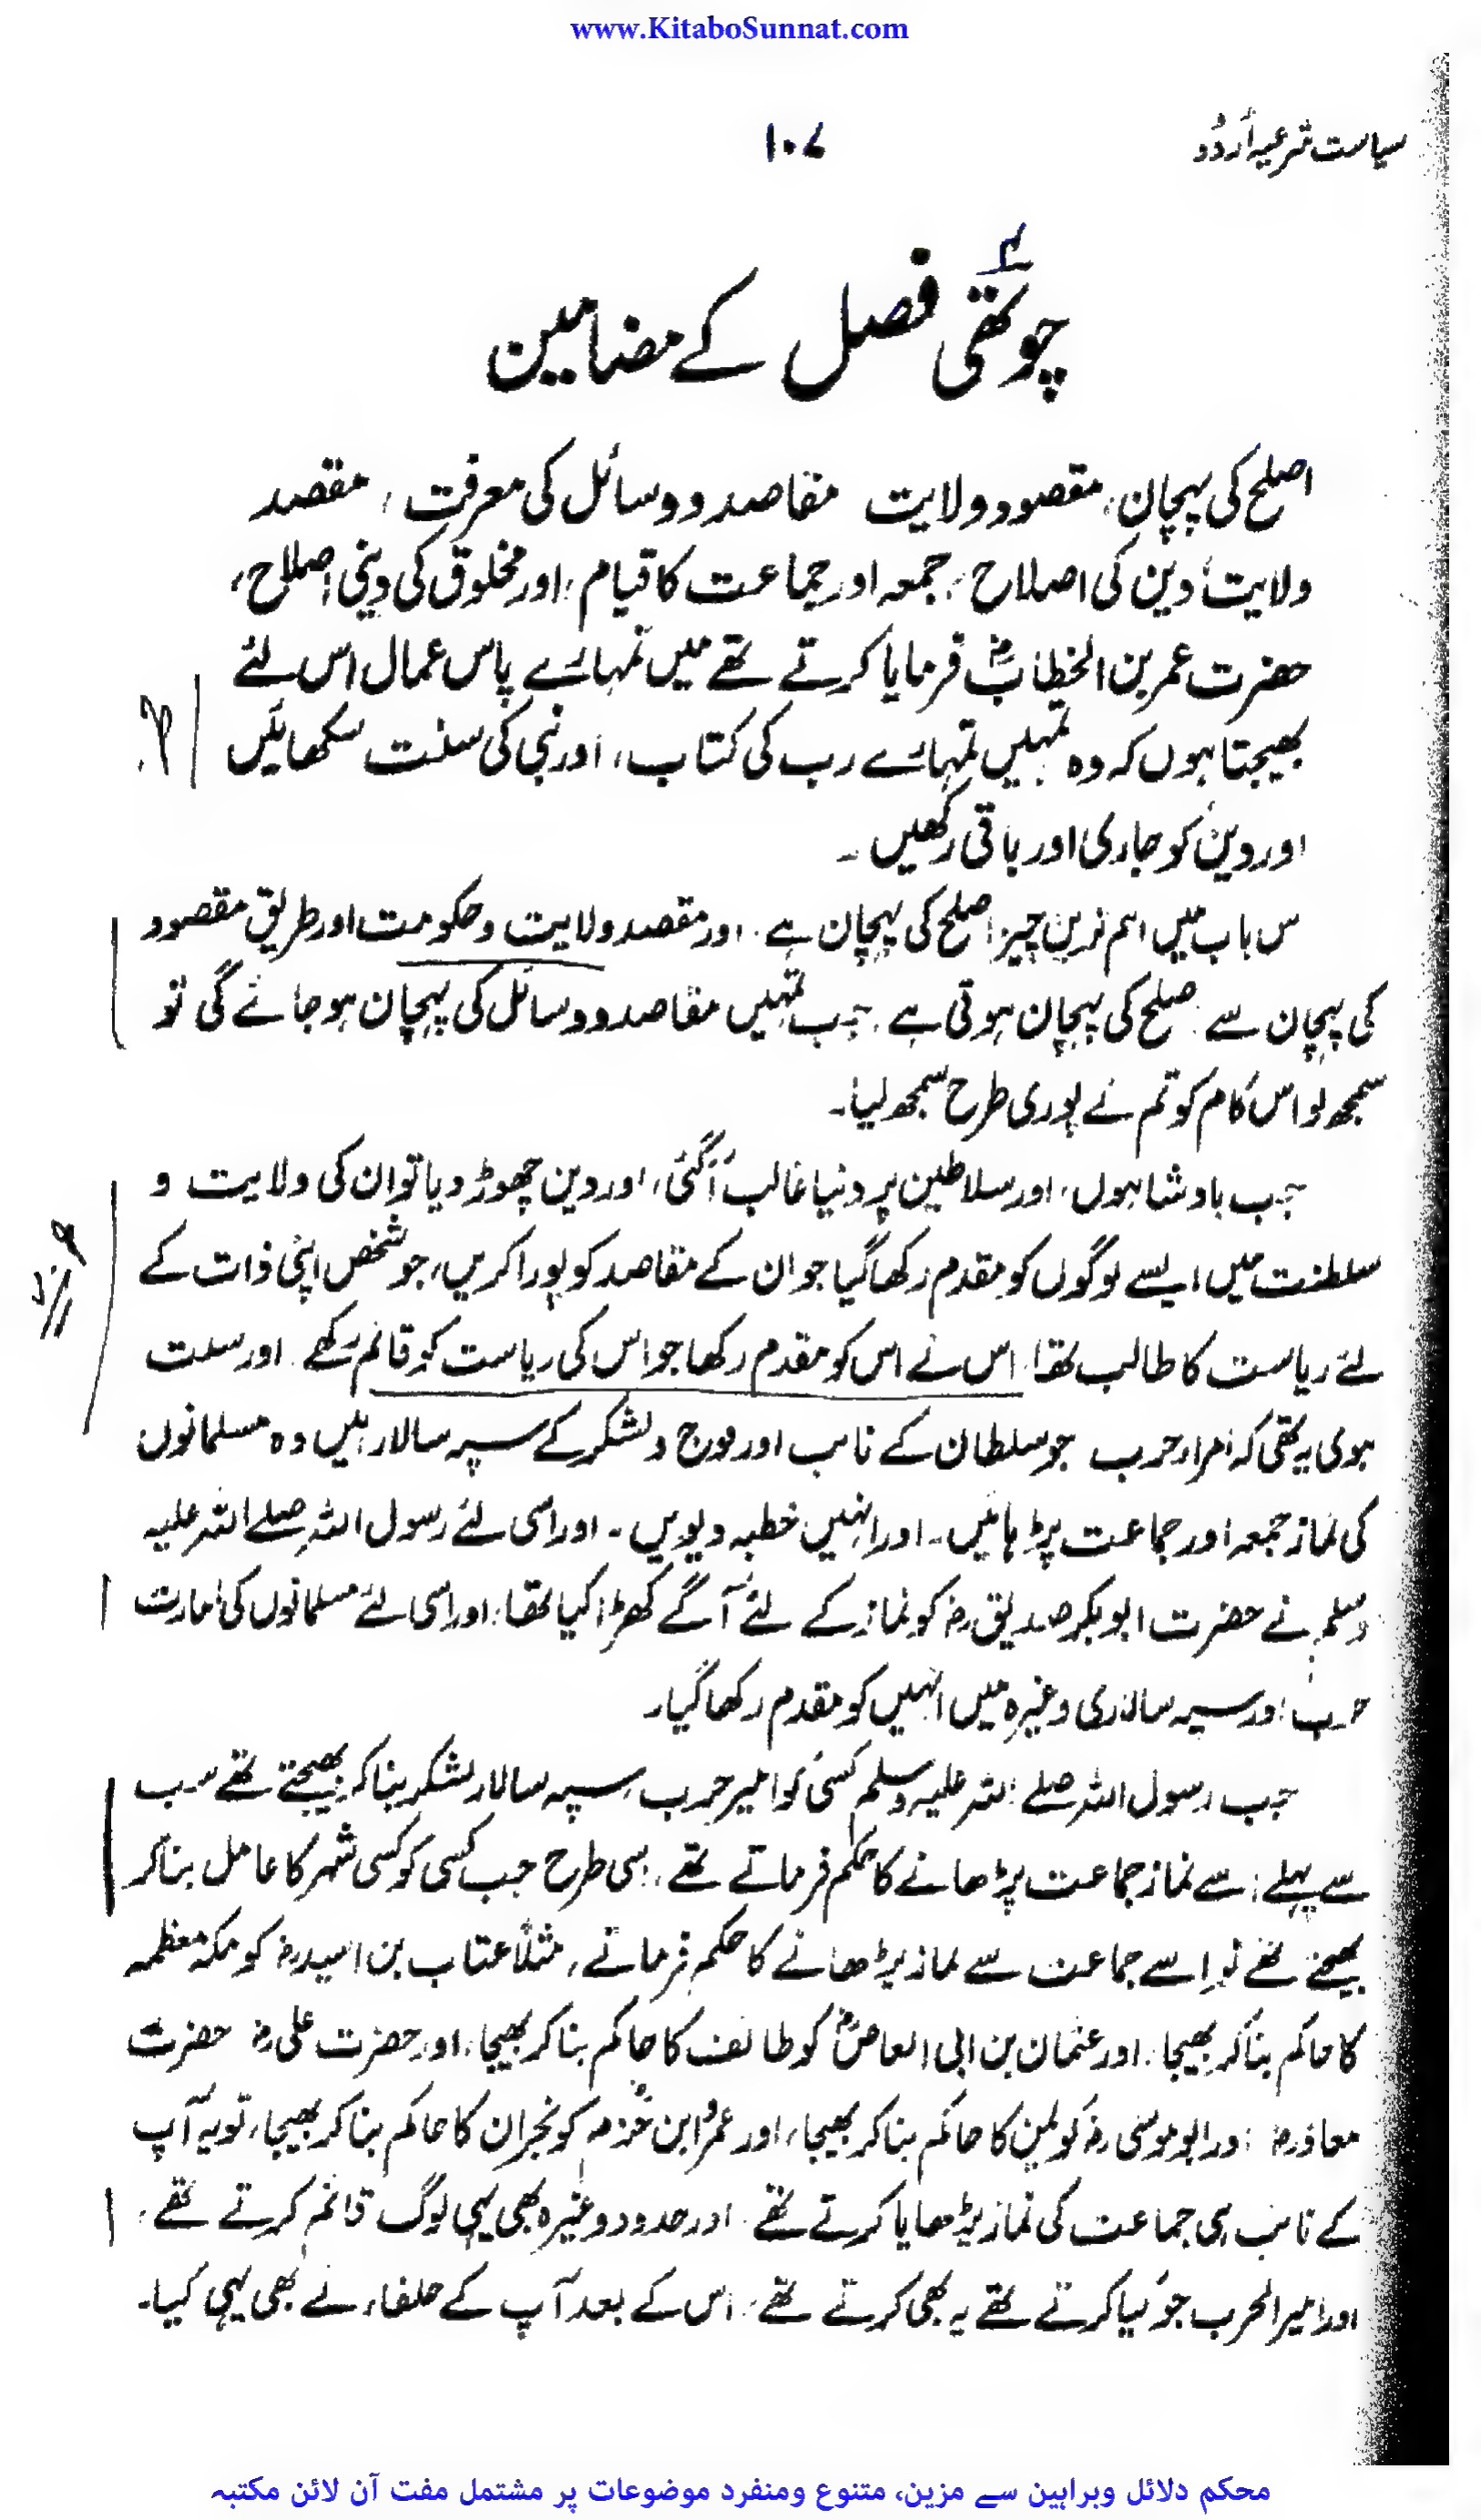 www.KitaboSunnat.com
سیاست شرعیہ اُردُو
۱۰۷
چوتھی فصل کے مضامین
اصلح کی پہچان، مقصودِ ولایت مقاصد و وسائل کی معرفت، مقصد
ولایت، دین کی اصلاح، جمعہ اور جماعت کا قیام، اور مخلوق کی دینی اصلاح،
حضرت عمر بن الخطابؓ فرمایا کرتے تھے میں تمہارے پاس عمال اس لئے
بھیجتا ہوں کہ وہ تمہیں تمہارے رب کی کتاب، اور نبی کی سنت سکھائیں
اور دین کو جاری اور باقی رکھیں ۔
س باب میں اہم ترین چیز اصلح کی پہچان ہے. اور مقصد ولایت و حکومت اور طریق مقصود
کی پہچان سے صلح کی پہچان ہوتی ہے جب تمہیں مقاصد و وسائل کی پہچان ہو جائے گی تو
سمجھ لو اس کام کو تم نے پوری طرح سمجھ لیا۔
جب بادشاہوں، اور سلاطین پر دنیا غالب آ گئی، اور دین چھوڑ دیا تو ان کی ولایت و
سلطنت میں ایسے لوگوں کو مقدم رکھا گیا جو ان کے مقاصد کو پورا کریں، جو شخص اپنی ذات کے
لئے ریاست کا طالب تھا اس نے اس کو مقدم رکھا جو اس کی ریاست کو قائم رکھے. اور سنت
ہوی یہ تھی کہ امراء حرب جو سلطان کے نائب اور فوج و لشکر کے سپہ سالار ہیں وہ مسلمانوں
کی نماز جمعہ اور جماعت پڑہائیں۔ اور انہیں خطبہ دیویں ۔ اور اسی لئے رسول اللہ صلے اللہ علیہ
وسلم نے حضرت ابوبکر صدیق رض کو نماز کے لئے آگے کھڑا کیا تھا، اور اسی لئے مسلمانوں کی امارت
حرب اور سپہ سالاری وغیرہ میں انہیں کو مقدم رکھا گیا۔
جب رسول اللہ صلے اللہ علیہ وسلم کسی کو امیر حرب، سپہ سالار لشکر بنا کر بھیجتے تھے سب
سے پہلے اسے نماز جماعت پڑھانے کا حکم فرماتے تھے، اسی طرح جب کسی کو کسی شہر کا عامل بنا کر
بھیجتے تھے تو اسے جماعت سے نماز پڑھانے کا حکم فرماتے، مثلاً عتاب بن اسید رض کو مکہ معظمہ
کا حاکم بنا کر بھیجا، اور عثمان بن ابی العاصؓ کو طائف کا حاکم بنا کر بھیجا، اور حضرت علی رض حضرت
معاذ رض اور ابو موسی رض کو یمن کا حاکم بنا کر بھیجا، اور عمرو ابن حزم کو نجران کا حاکم بنا کر بھیجا، تو یہ آپ
کے نائب ہی جماعت کی نماز پڑھایا کرتے تھے. اور حدود وغیرہ بھی یہی لوگ قائم کرتے تھے،
اور امیر الحرب جو کیا کرتے تھے یہ بھی کرتے تھے، اس کے بعد آپ کے خلفاء نے بھی یہی کیا۔
محکم دلائل وبراہین سے مزین، متنوع ومنفرد موضوعات پر مشتمل مفت آن لائن مکتبہ